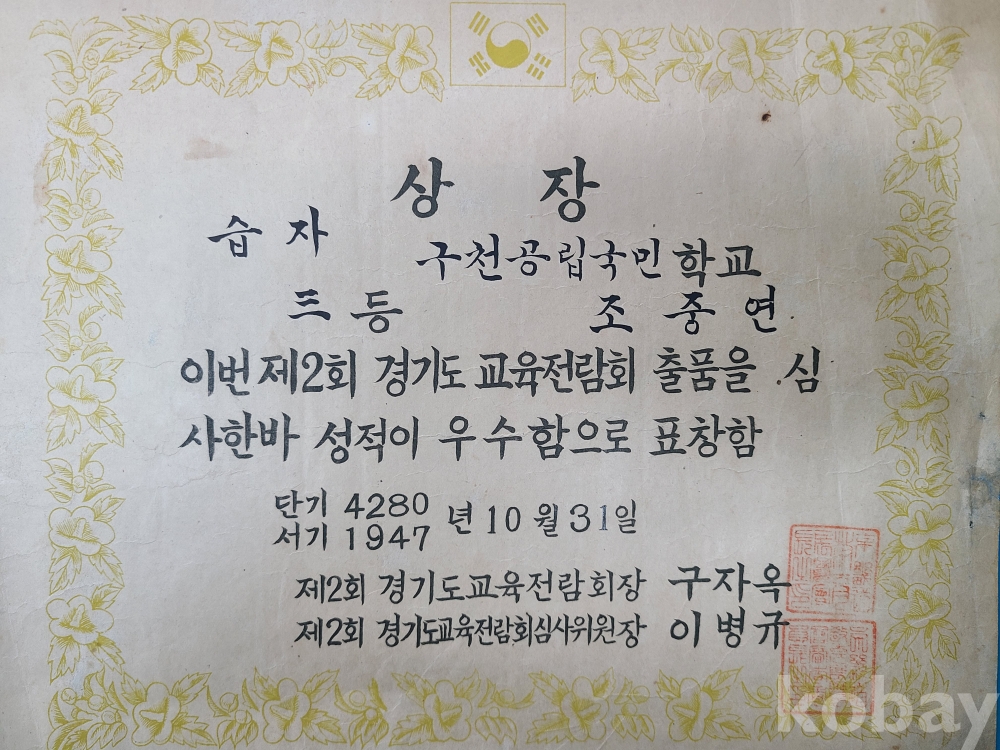 상 장
습 자
구천공립국민학교
三 등 조 중 연
이번 제2회 경기도 교육전람회 출품을 심
사한바 성적이 우수함으로 표창함
단기 4280
서기 1947 년 10 월 31일
제2회 경기도교육전람회장 구자옥
제2회 경기도교육전람회심사위원장 이병규
kobay